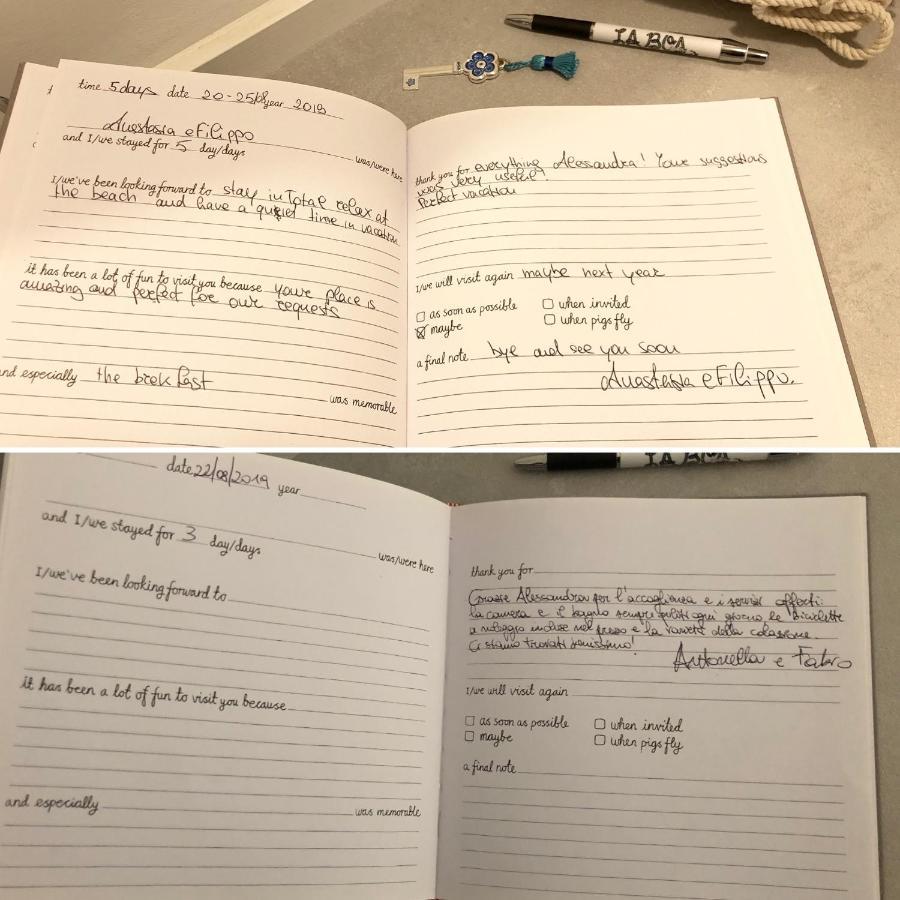 IA BOA
time 5 days date 20-25/08 year 2019
Anastasia e Filippo was/were here
and I/we stayed for 5 day/days
I/we've been looking forward to stay in Total relax at
the beach and have a quiet time in vacation
it has been a lot of fun to visit you because your place is
amazing and perfect for our requests
and especially the brek fast
was memorable
thank you for everything Alessandra! Your suggestions
was very useful!
Perfect vacation
I/we will visit again maybe next year
as soon as possible when invited
maybe when pigs fly
a final note bye and see you soon
Anastasia e Filippo.
IA BOA
date 22/08/2019 year
was/were here
and I/we stayed for 3 day/days
I/we've been looking forward to
it has been a lot of fun to visit you because
and especially was memorable
thank you for
Grazie Alessandra per l'accoglienza e i servizi offerti:
la camera e il bagno sempre puliti ogni giorno, le biciclette
a noleggio incluse nel prezzo e la varietà della colazione.
Ci siamo trovati benissimo!
Antonella e Fabio
I/we will visit again
as soon as possible when invited
maybe when pigs fly
a final note